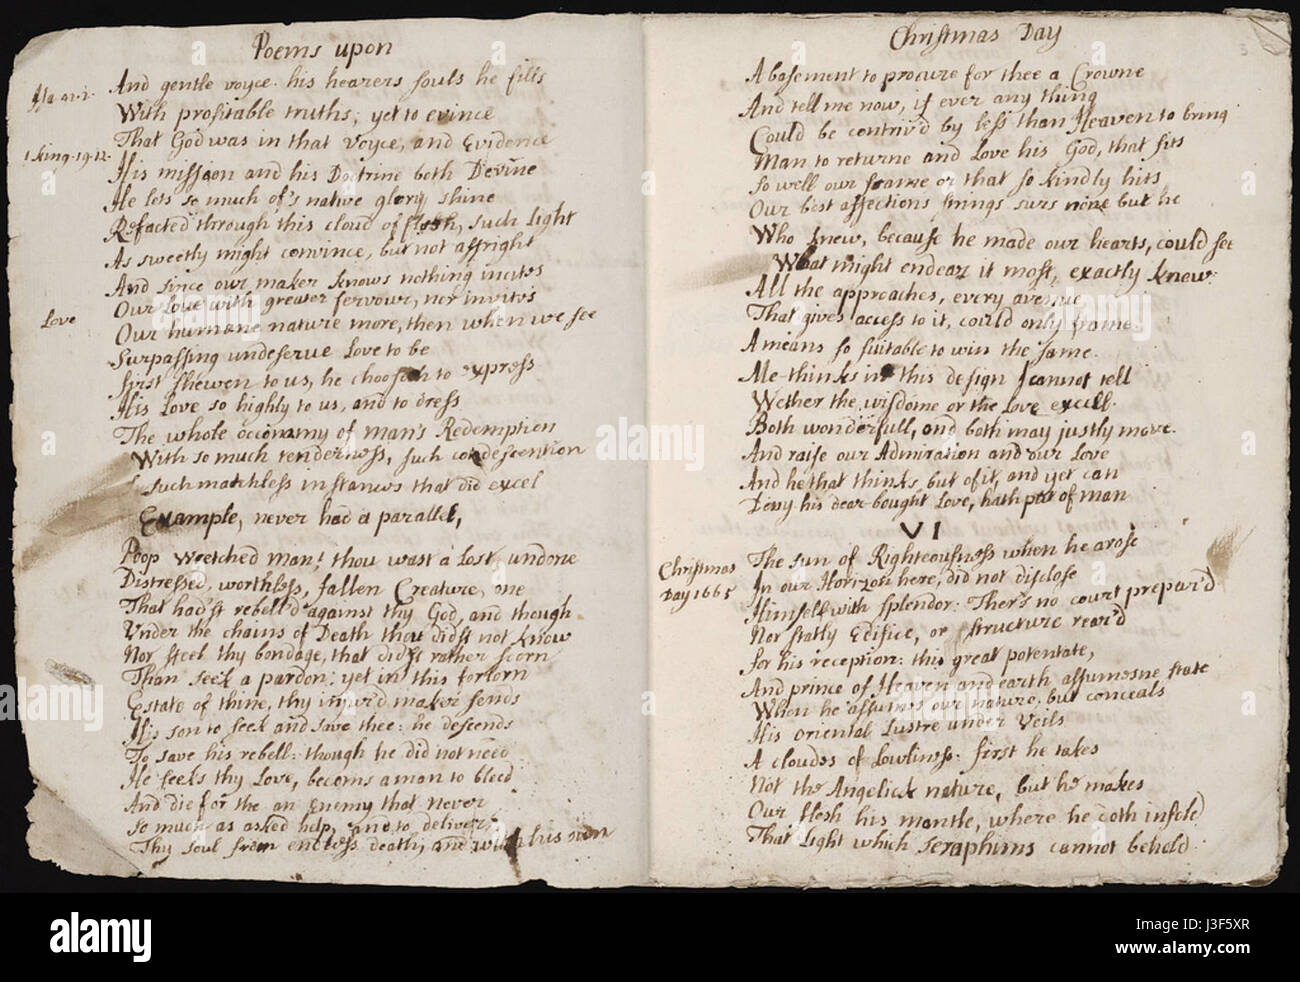 Poems upon
Isa 42.2.
And gentle voyce. his hearers souls he fills
With profitable truths; yet to evince
That God was in that Voyce, and Evidence
1 King. 19.12.
His mission and his Doctrine both Devine
He lets so much of's native glory shine
Refracted through this cloud of flesh, such light
As sweetly might convince, but not affright
And since our maker knows nothing incites
Love
Our Love with greater fervour, nor invites
Our humane nature more, then when we see
Surpassing undeserve Love to be
first shewen to us, he chooseth to express
His Love so highly to us, and to dress
The whole occonamy of man's Redemption
With so much tenderness, such condescention
Such matchless instances that did excel
Example, never had a parallel,
Poor Wretched man! thou wast a Lost, undone
Distressed, worthless, fallen Creature, one
That hadst rebell'd against thy God, and though
Under the chains of Death thou didst not know
Nor feel thy bondage, that didst rather scorn
Than seek a pardon: yet in this forlorn
Estate of thine, thy injur'd maker sends
His son to seek and save thee: he descends
To save his rebell: though he did not need
He seeks thy Love, becoms a man to bleed
And die for the an Enemy that never
So much as asked help, and to deliver
Thy soul from endless death, and with his own
Christmas Day
5
Abasement to procure for thee a Crowne
And tell me now, if ever any thing
Could be contriv'd by less than Heaven to bring
Man to returne and Love his God, that fits
So well our frame or that so kindly hits
Our best affections springs surs none but he
Who knew, because he made our hearts, could see
What might endear it most, exactly knew:
All the approaches, every avenue
That gives access to it, could only frame.
A means so suitable to win the same.
Me-thinks in this design I cannot tell
Wether the wisdome or the Love excell.
Both wonderfull, and both may justly move.
And raise our Admiration and our Love
And he that thinks, but of it, and yet can
Deny his dear-bought Love, hath part of man
VI
Christmas
Day 1665
The sun of Righteousness when he arose
In our Horizon here, did not disclose
Himself with splendor: Ther's no court prepar'd
Nor stately Edifice, or structure rear'd
for his reception: this great potentate,
And prince of Heaven and earth assumes no state
When he assumes our nature, but conceals
His oriental Lustre under Veils
A cloudes of Lowliness. first he takes
Not the Angelick nature, but he makes
Our flesh his mantle, where he doth infold
That Light which Seraphims cannot behold
alamy
alamy
Image ID: J3F5XR
www.alamy.com